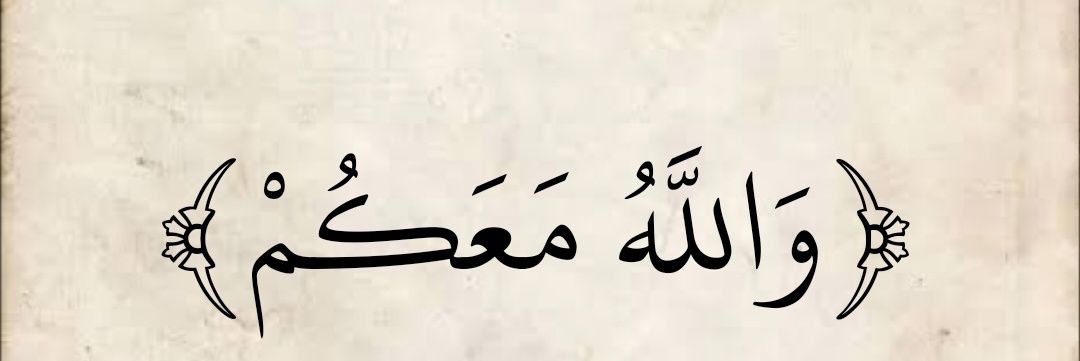 ﴿وَاللَّهُ مَعَكُمْ﴾